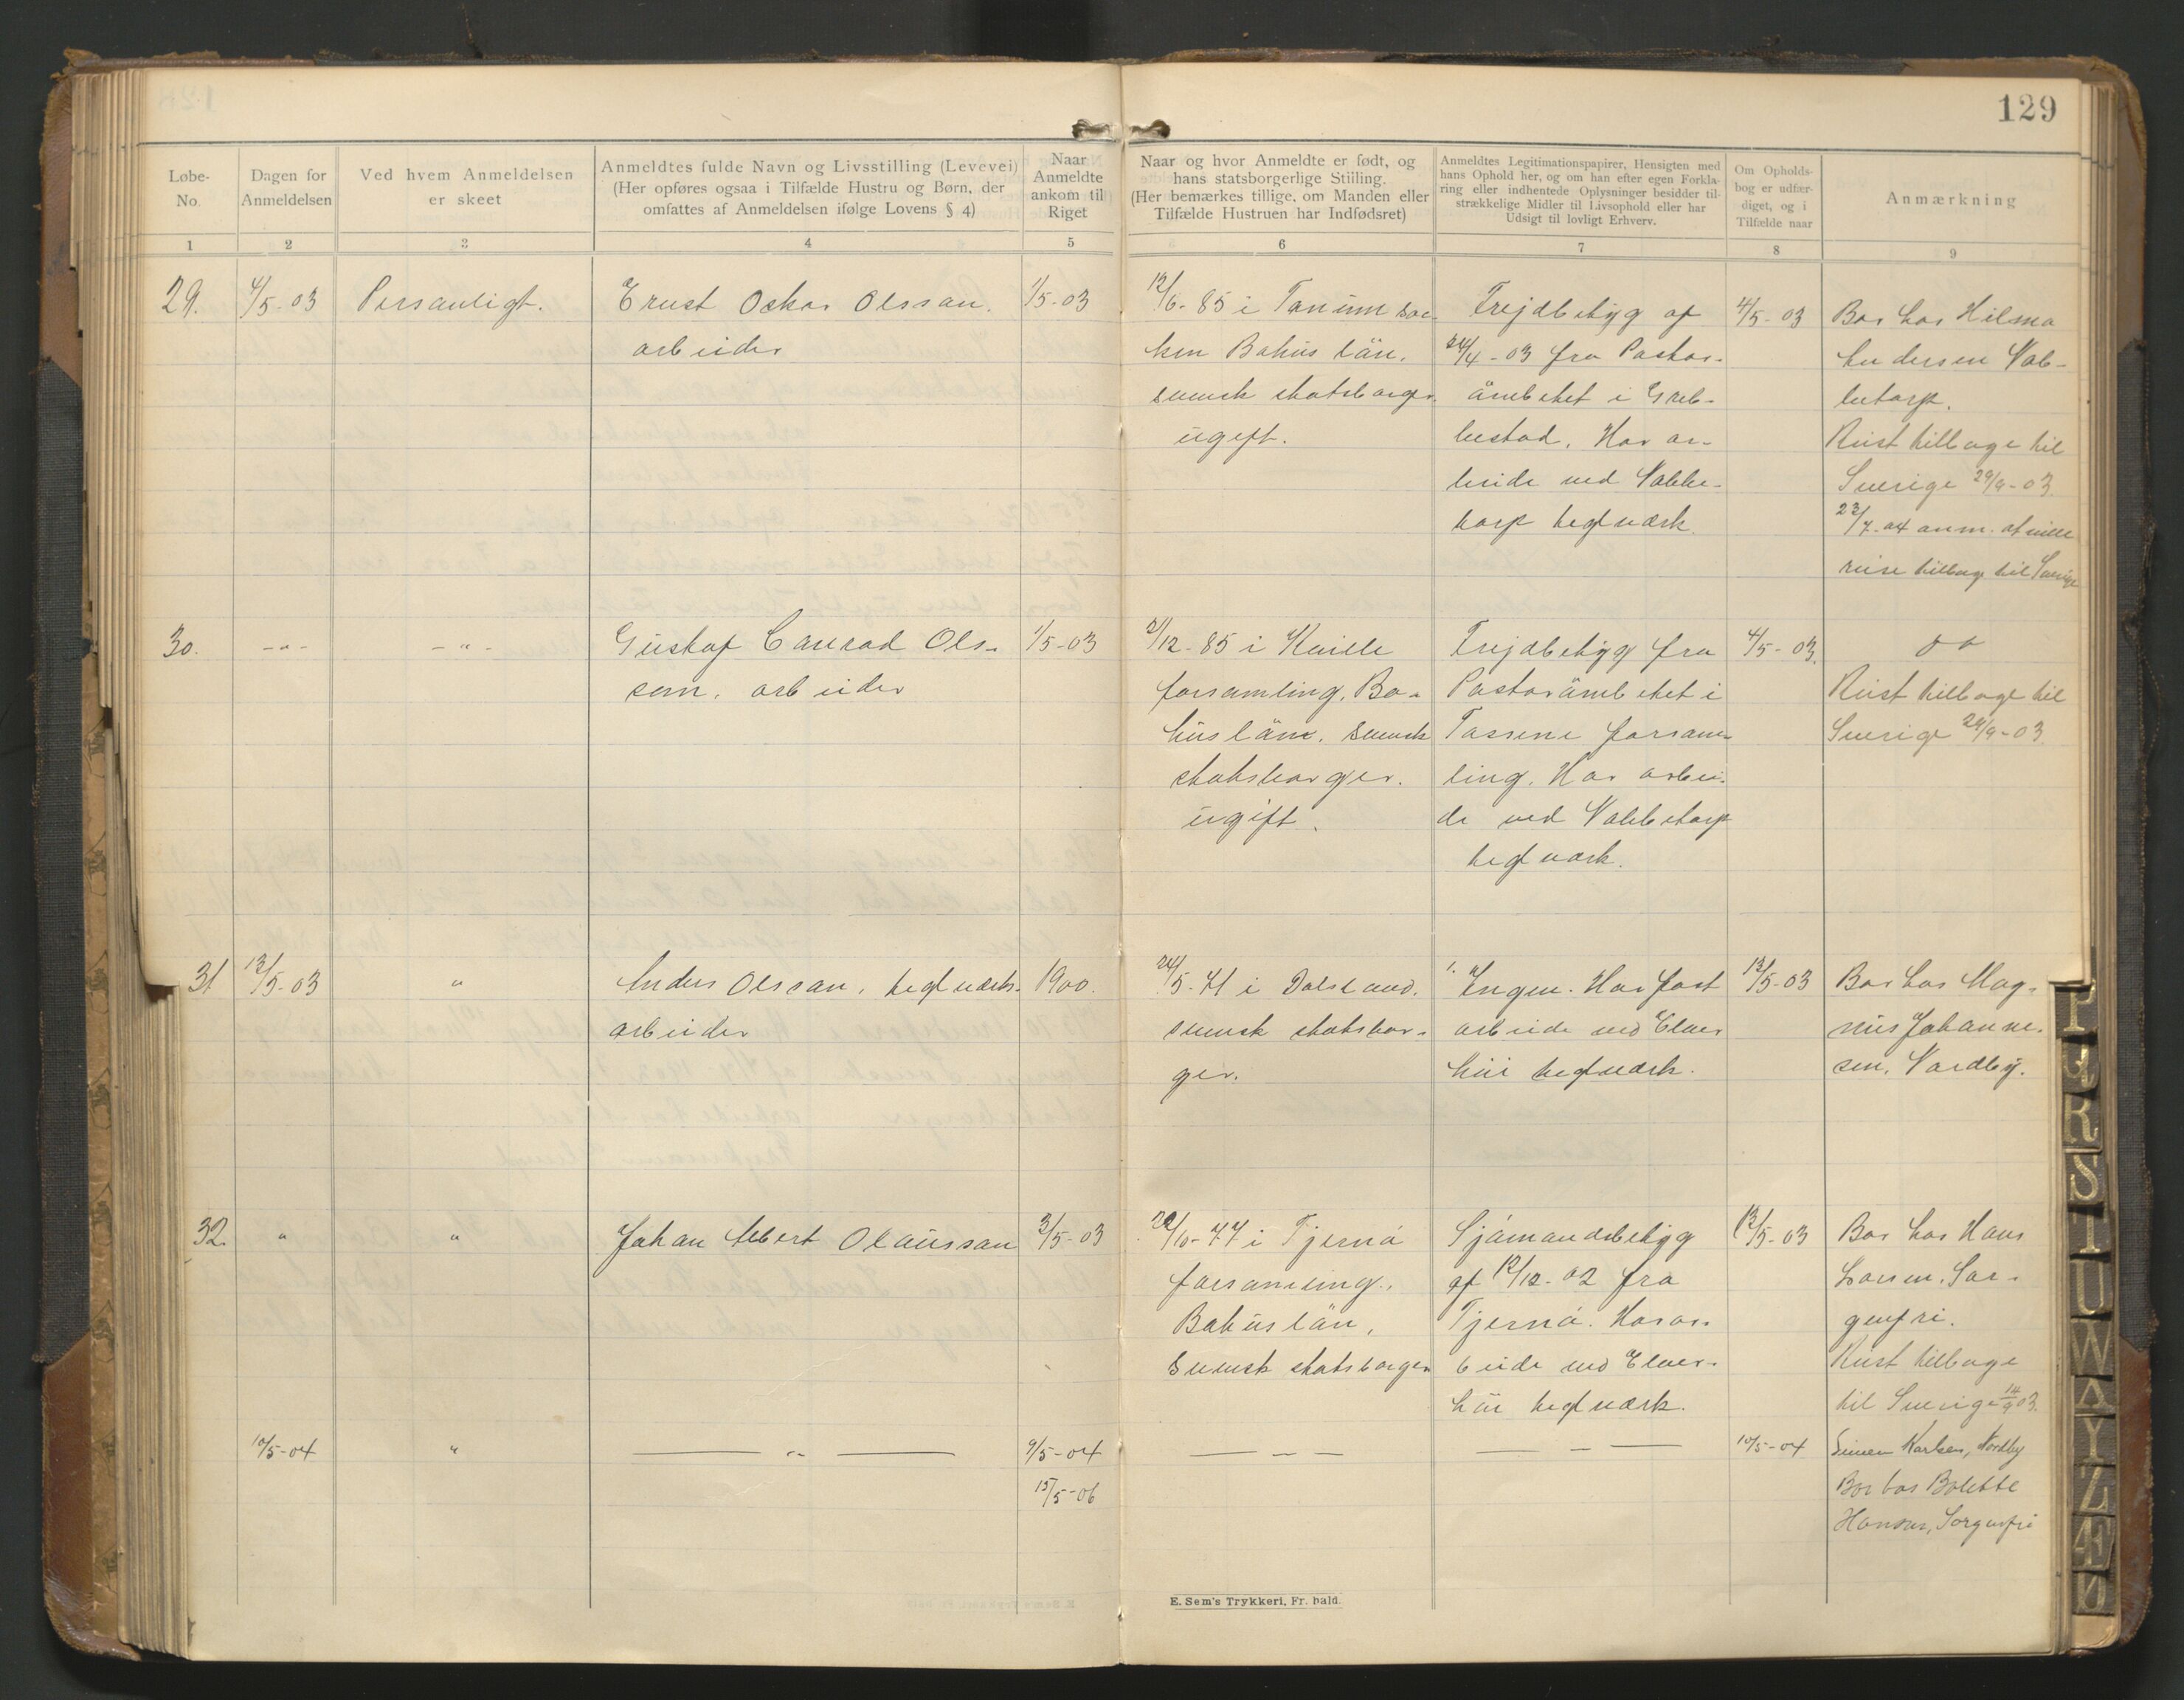 129
Løbe-
No.
Dagen for
Anmeldelsen
Ved hvem Anmeldelsen
er skeet
Anmeldtes fulde Navn og Livsstilling (Levevei)
(Her opføres ogsaa i Tilfælde Hustru og Børn, der
omfattes af Anmeldelsen ifølge Lovens § 4)
Naar
Anmeldte
ankom til
Riget
Naar og hvor Anmeldte er født, og
hans statsborgerlige Stilling.
(Her bemærkes tillige, om Manden eller
Tilfælde Hustruen har Indfødsret)
Anmeldtes Legitimationspapirer, Hensigten med
hans Ophold her, og om han efter egen Forkla-
ring eller indhentede Oplysninger besidder til-
strækkelige Midler til Livsophold eller har
Udsigt til lovligt Erhverv.
Om Opholds-
bog er udfær-
diget, og i
Tilfælde naar
Anmærkning
1 2 3 4 5 6 7 8 9
29.
4/5-03
Personligt.
Ernst Oskar Olsson.
arbeider
1/5-03
12/6-85 i Tanum soc-
ken Bohus län.
svensk statsborger.
ugift.
Frejdbetyg af
24/4-03 fra Pastor-
ämbetet i Greb-
bestad. Har ar-
beide ved Nabbe-
torp teglværk.
4/5-03
Bor hos Hilma
Andersen Nab-
betorp.
Reist tilbage til
Sverige 29/9-03
23/7-04 anm. at ville
reise tilbage til Sverige
30.
-"-
-"-
Gustaf Conrad Ols-
son. arbeider
1/5-03
2/12-85 i Kville
forsamling, Bo-
huslän. svensk
statsborger.
ugift.
Frejdbetyg fra
Pastorämbetet i
Tossene forsam-
ling. Har arbei-
de ved Nabbetorp
teglværk.
4/5-03.
Reist tilbage til
Sverige 24/9-03
31
12/5-03
"
Anders Olsson, teglværks-
arbeider
1900.
24/5-71 i Dalsland.
svensk statsbor-
ger.
Ingen. Har fast
arbeide ved Elver
høi teglværk.
12/5-03
Bor hos Mag-
nus Johanne-
sen, Nordby.
32.
"
"
Johan Albert Olausson
3/5-03
29/10-77 i Tjernö
forsamling,
Bohuslän,
svensk statsborger
Sjömandsbetyg
af 12/12-02 fra
Tjernö. Har ar-
beide ved Elver-
høi teglværk.
12/5-03
Bor hos Hans
Larsen, Sor-
genfri.
Reist tilbage
til Sverige 14/9 03.
10/5-04
"
— " —
9/5-04
15/5-06
— - —
— - —
10/5-04
Simen Karlsen, Nordby
Bor hos Bolette
Hansen, Sorgenfri
E. Sem's Trykkeri, Fr. hald.
P
Q
R
S
T
U
W
Y
Z
Æ
Ø